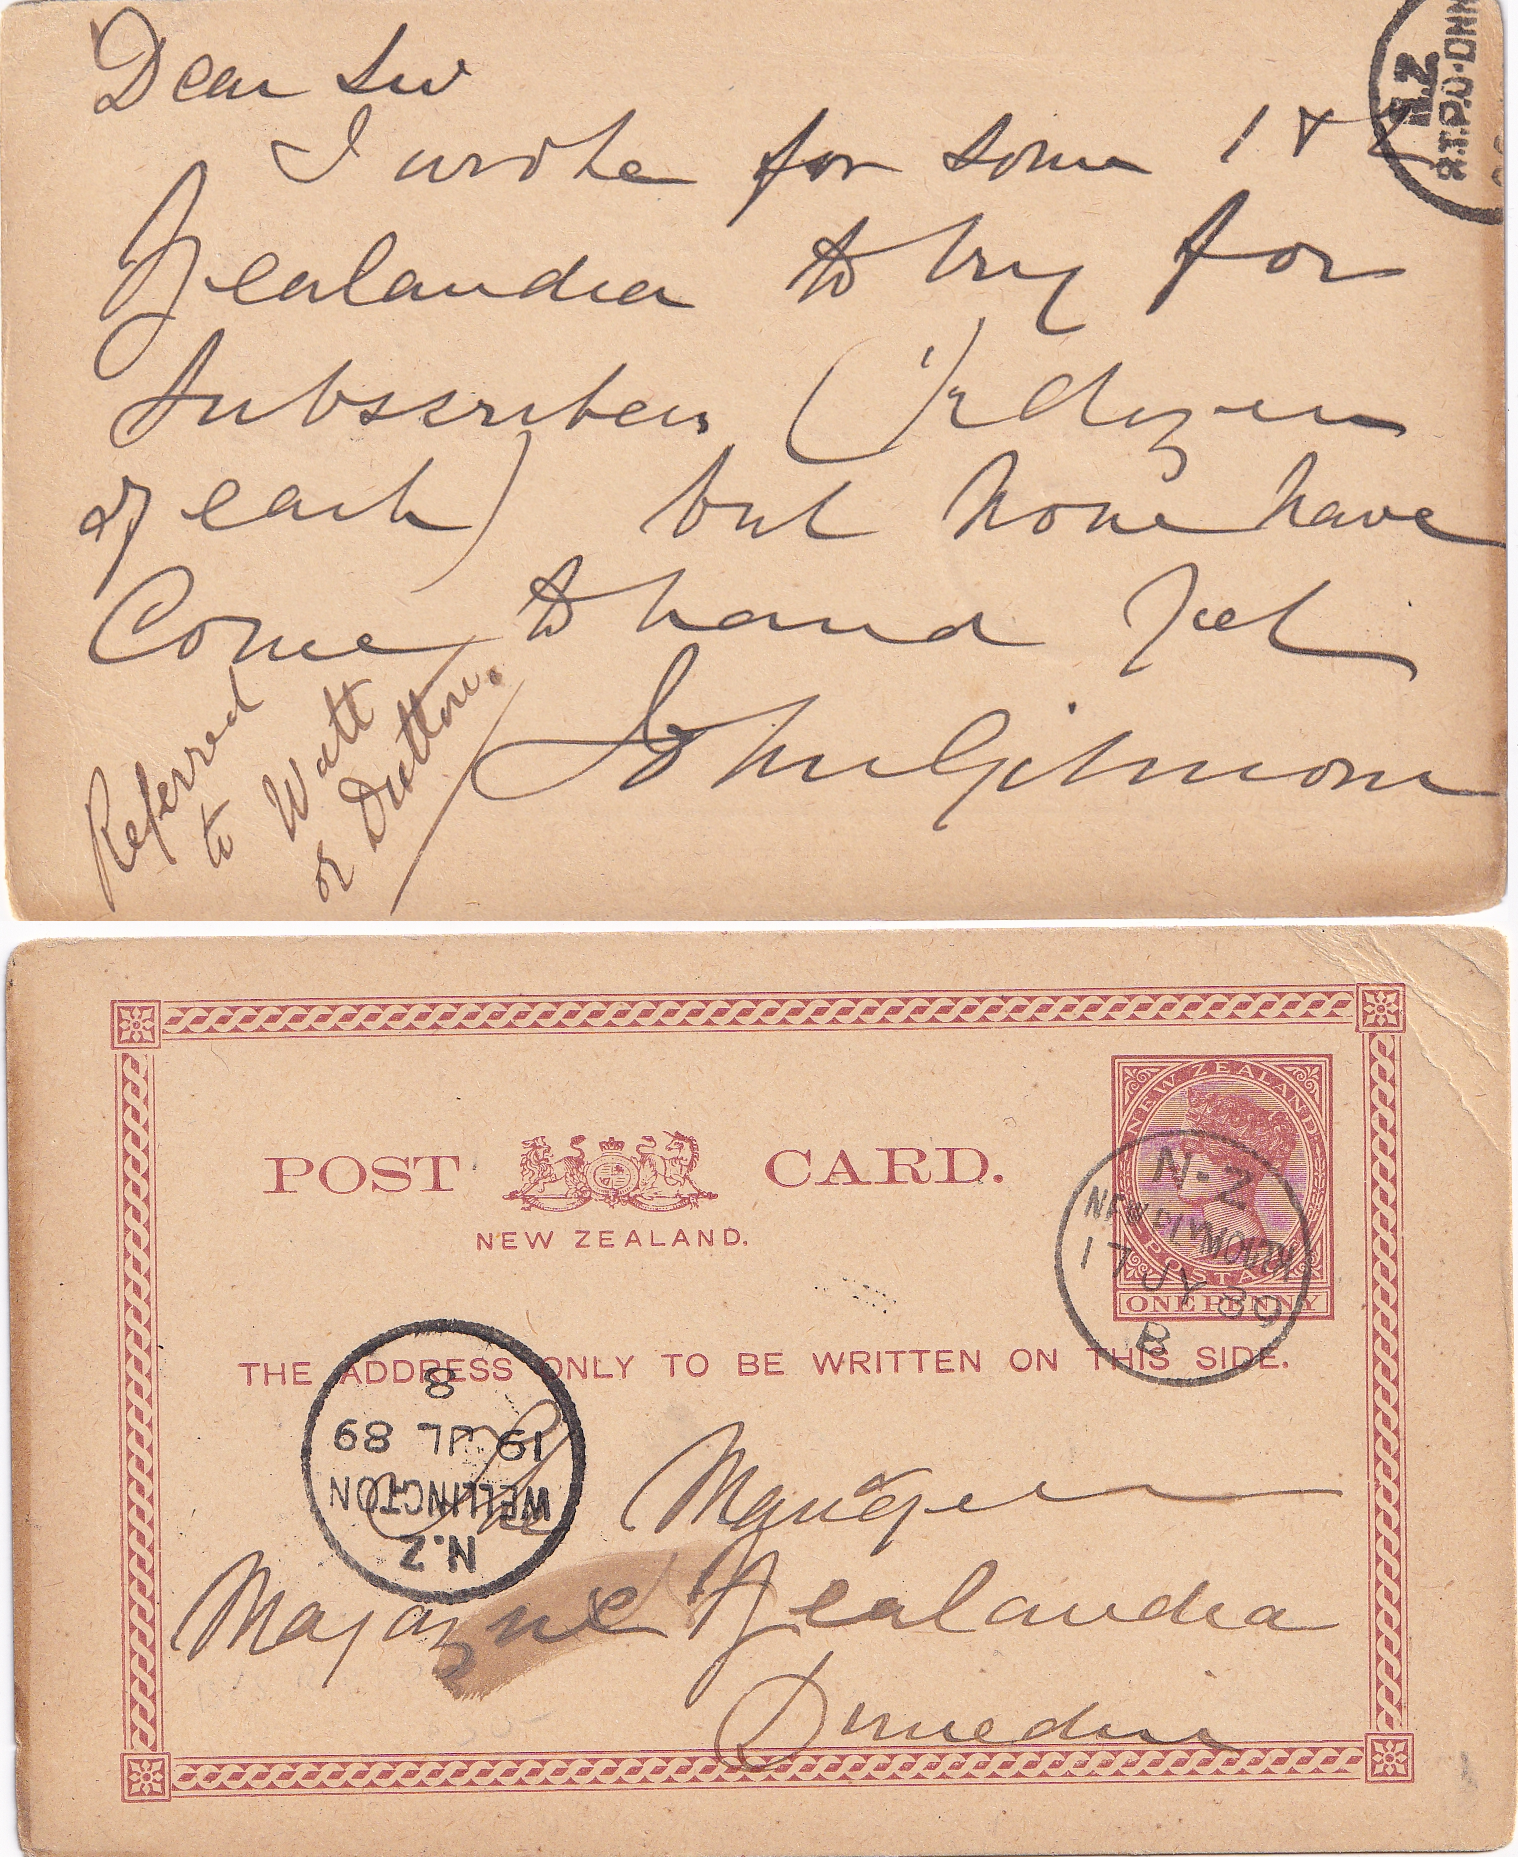 Dear Sir
I wrote for some 1 & 2
Zealandia to try for
Subscribers (1/2 dozen
of each) but none have
Come to hand yet
John Gilmour
Referred
to Watt
or Dutton.
N.Z
R.T.P.O. DN
POST CARD.
NEW ZEALAND.
NEW ZEALAND
POSTAGE
ONE PENNY
N-Z
NEW PLYMOUTH
17 JY 89
B
THE ADDRESS ONLY TO BE WRITTEN ON THIS SIDE.
8
19 JL 89
WELLINGTON
N.Z
The Manager
Magazine Zealandia
Dunedin